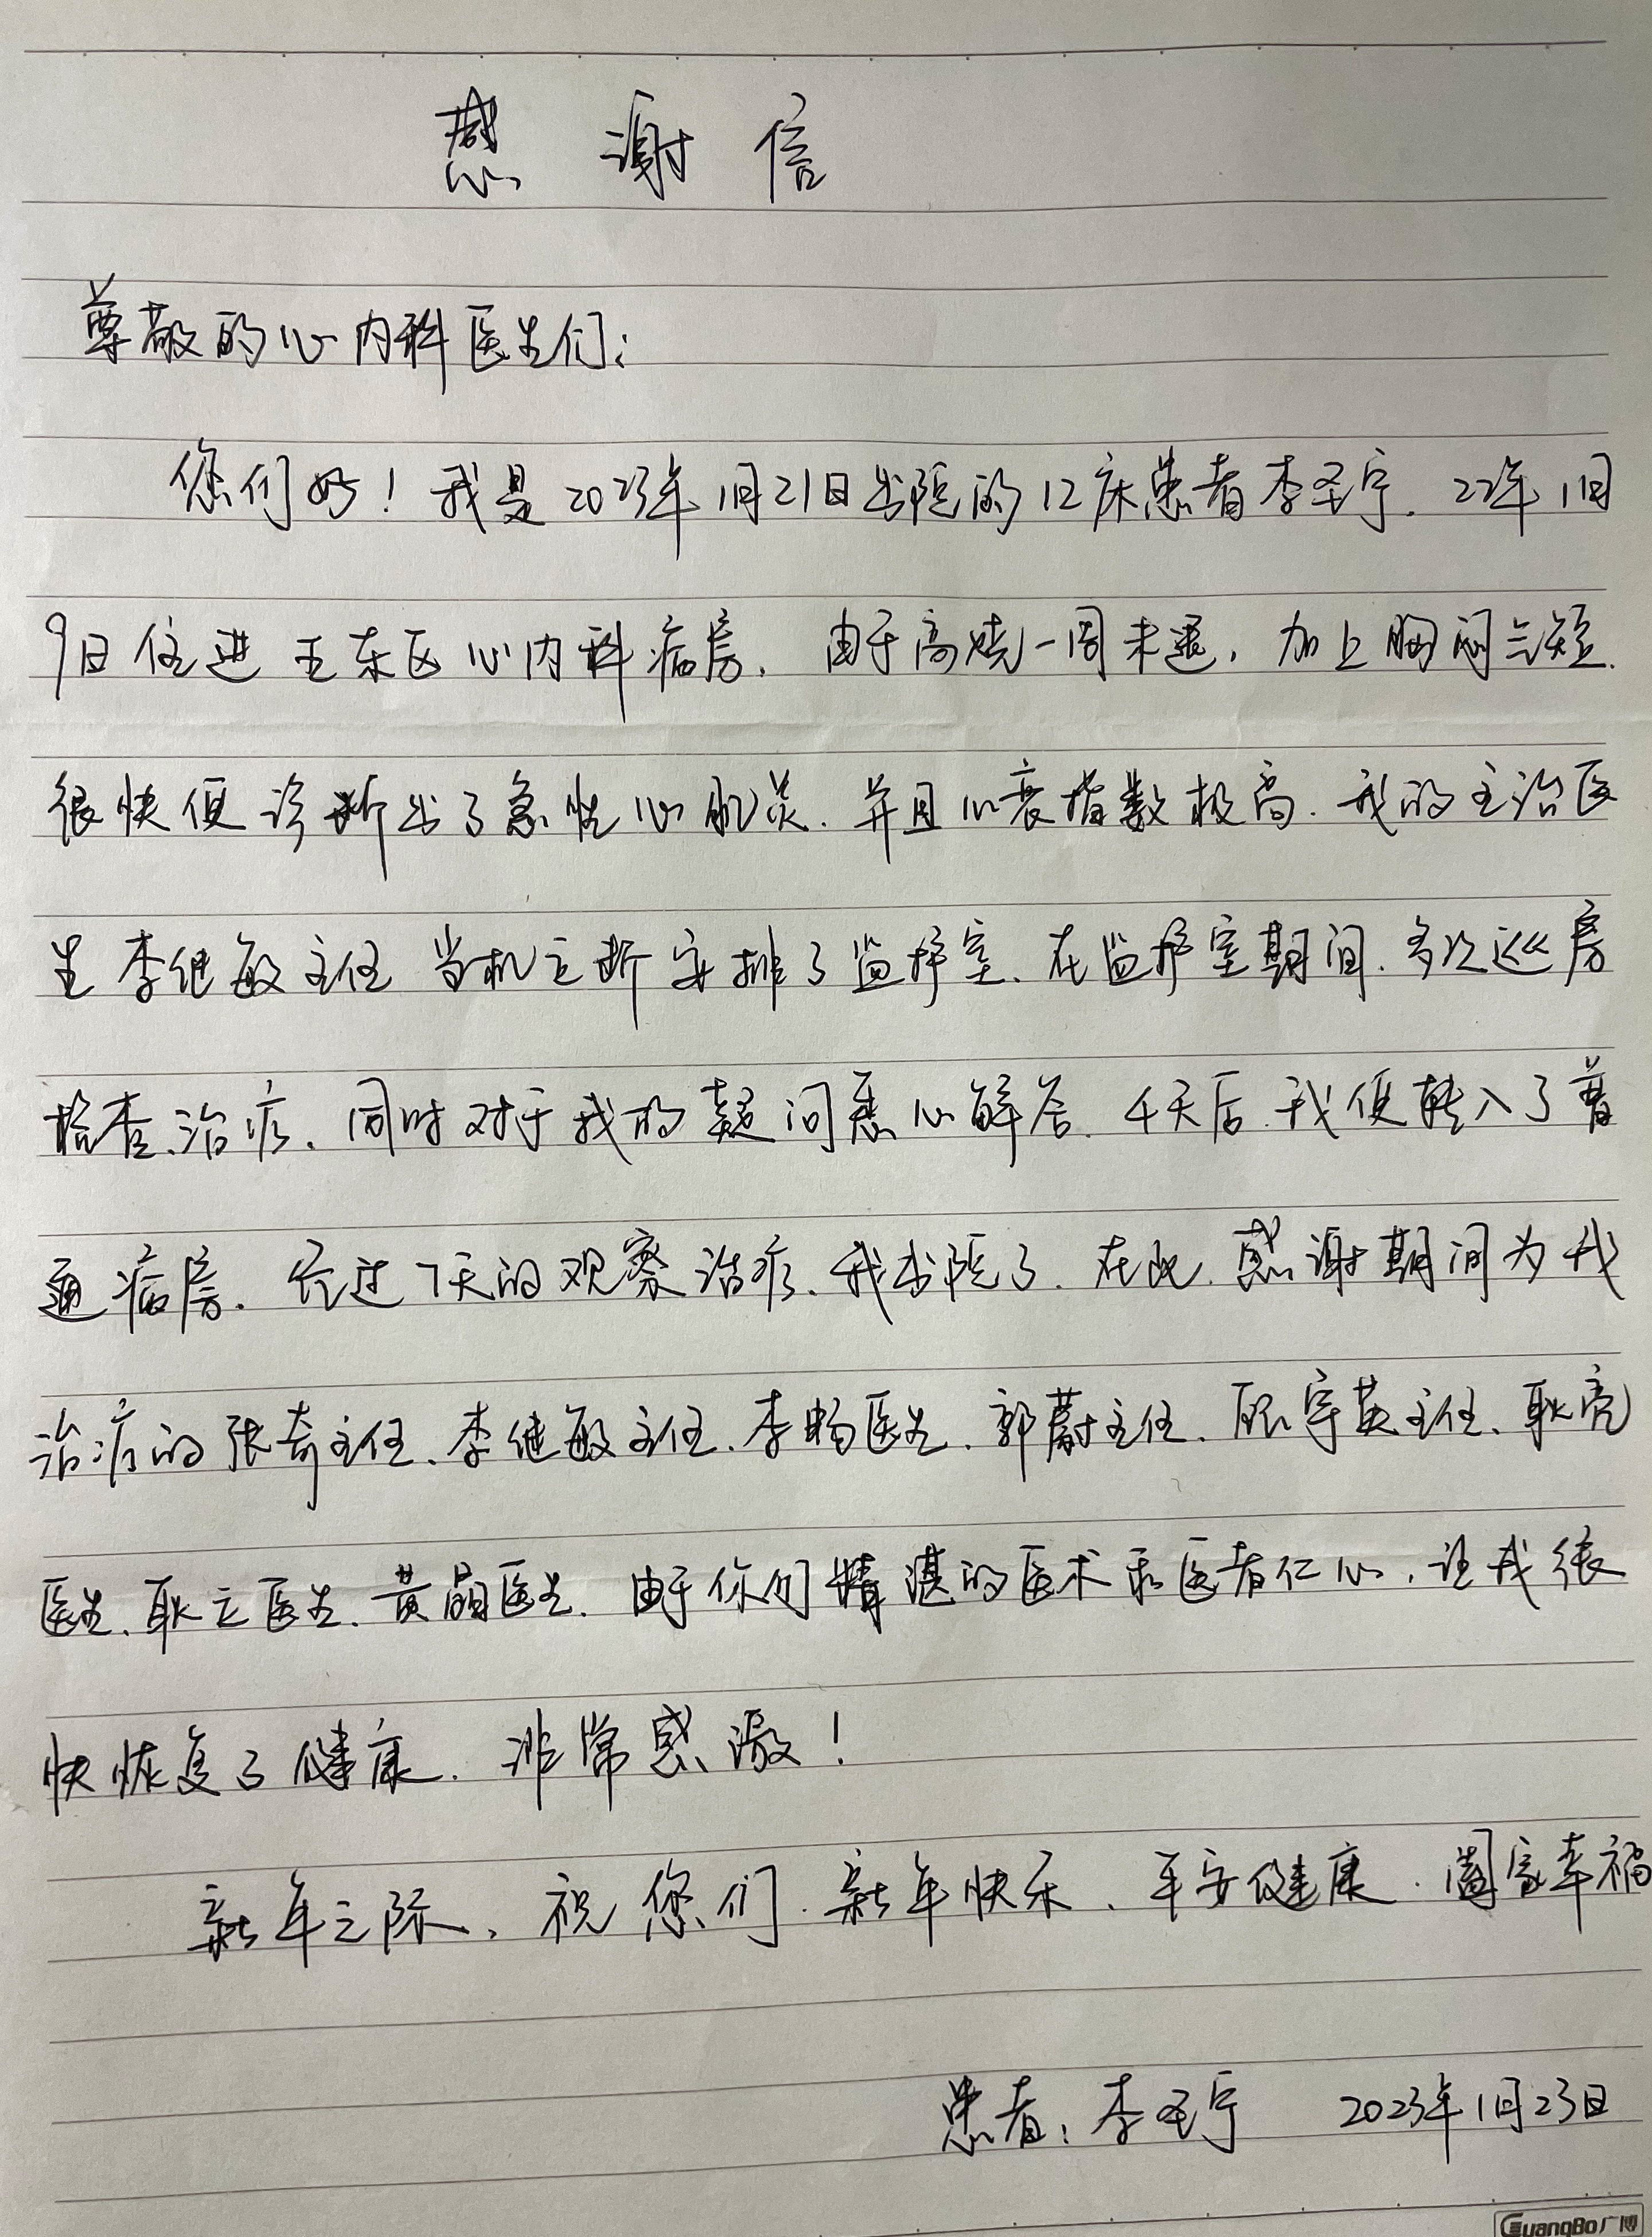 感谢信
尊敬的心内科医生们:
您们好!我是2023年1月21日出院的12床患者李圣宁.22年1月
9日住进王东区心内科病房.由于高烧一周未退,加上胸闷气短.
很快便诊断出了急性心肌炎.并且心衰指数极高.我的主治医
生李继敏主任当机立断安排了监护室.在监护室期间.多次巡房
检查、治疗.同时对于我的疑问悉心解答.4天后.我便转入了普
通病房.经过7天的观察治疗.我出院了.在此.感谢期间为我
治疗的张奇主任、李继敏主任、李畅医生、郭蔚主任、宇英主任、耿亮
医生、耿立医生、黄晶医生.由于你们精湛的医术和医者仁心,让我很
快恢复了健康.非常感激!
新年之际,祝您们.新年快乐、平安健康.阖家幸福
患者:李圣宁 2023年1月23日
GuangBo广博